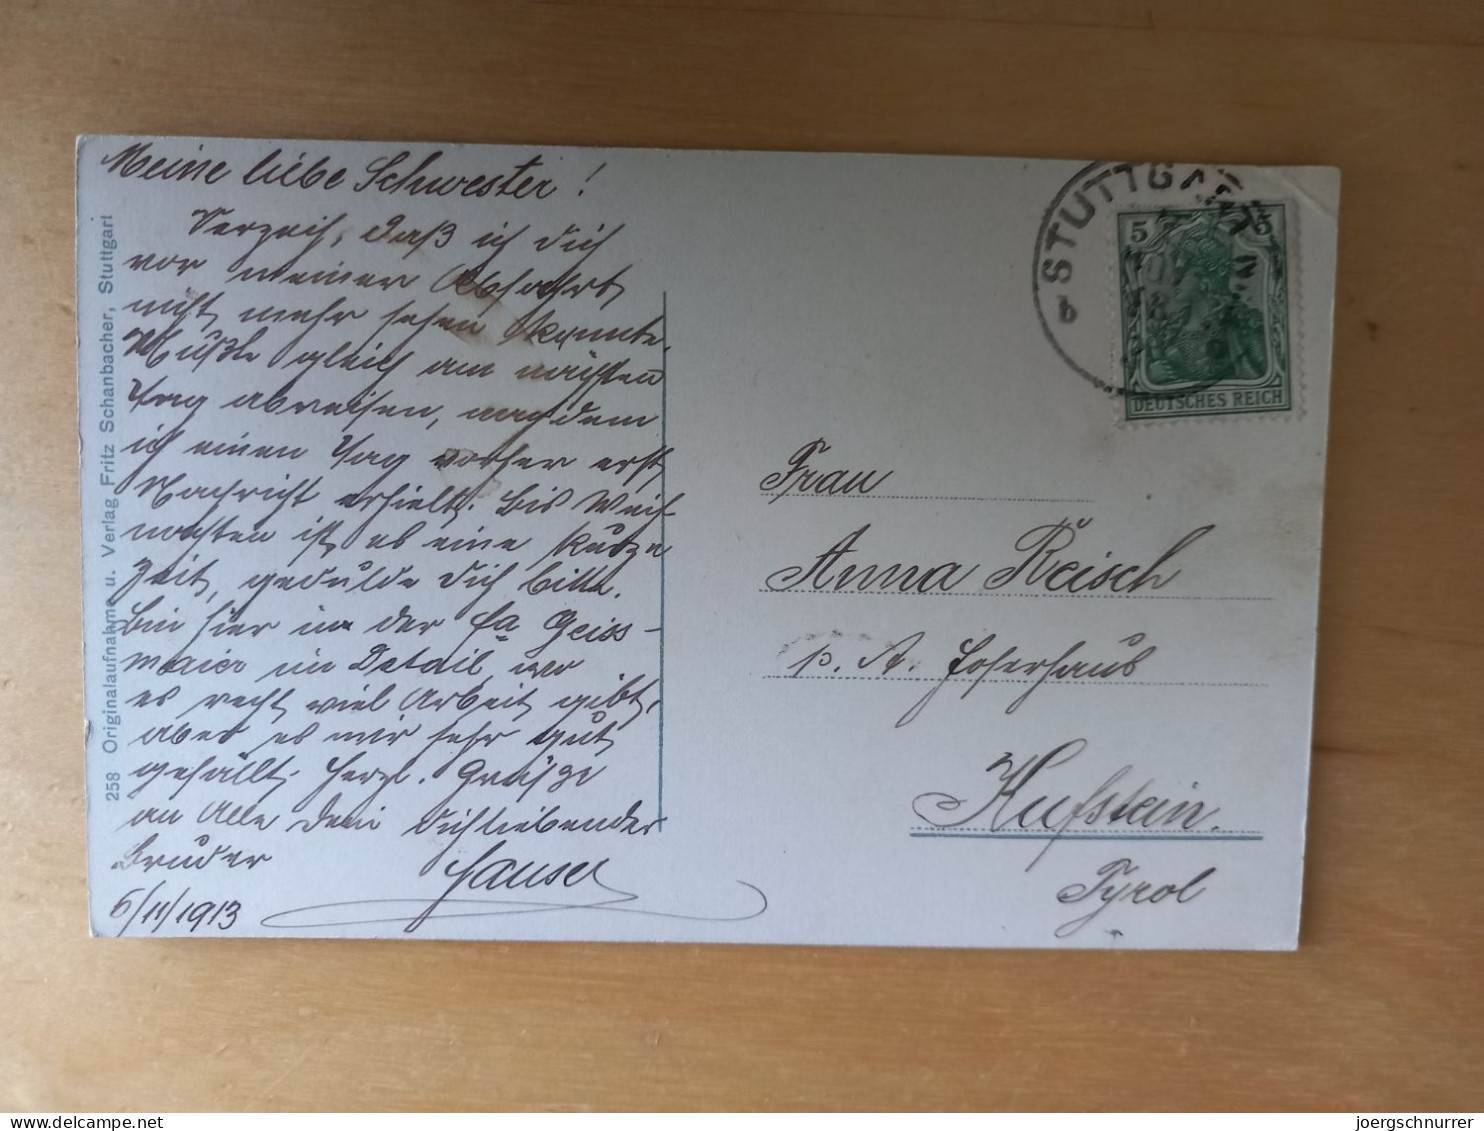 Meine liebe Schwester!
Verzeih, daß ich dich
vor meiner Abfahrt
nicht mehr sehen konnte.
Mußte gleich am nächsten
Tag abreisen, nachdem
ich einen Tag vorher erst
Nachricht erhielt. Bis Weih-
nachten ist es eine kurze
Zeit, gedulde dich bitte.
Bin hier in der Fa Geiss-
maier im Detail, wo
es recht viel Arbeit gibt,
aber es mir sehr gut
gefällt. Herzl. Grüße
an Alle Dein dichliebender
Bruder
6/11/1913
258 Originalaufnahme u. Verlag Fritz Schanbacher, Stuttgart
STUTTGART
5 5
DEUTSCHES REICH
Frau
Anna Reisch
p. A.
Kufstein.
Tyrol
delcampe.net
joergschnurrer